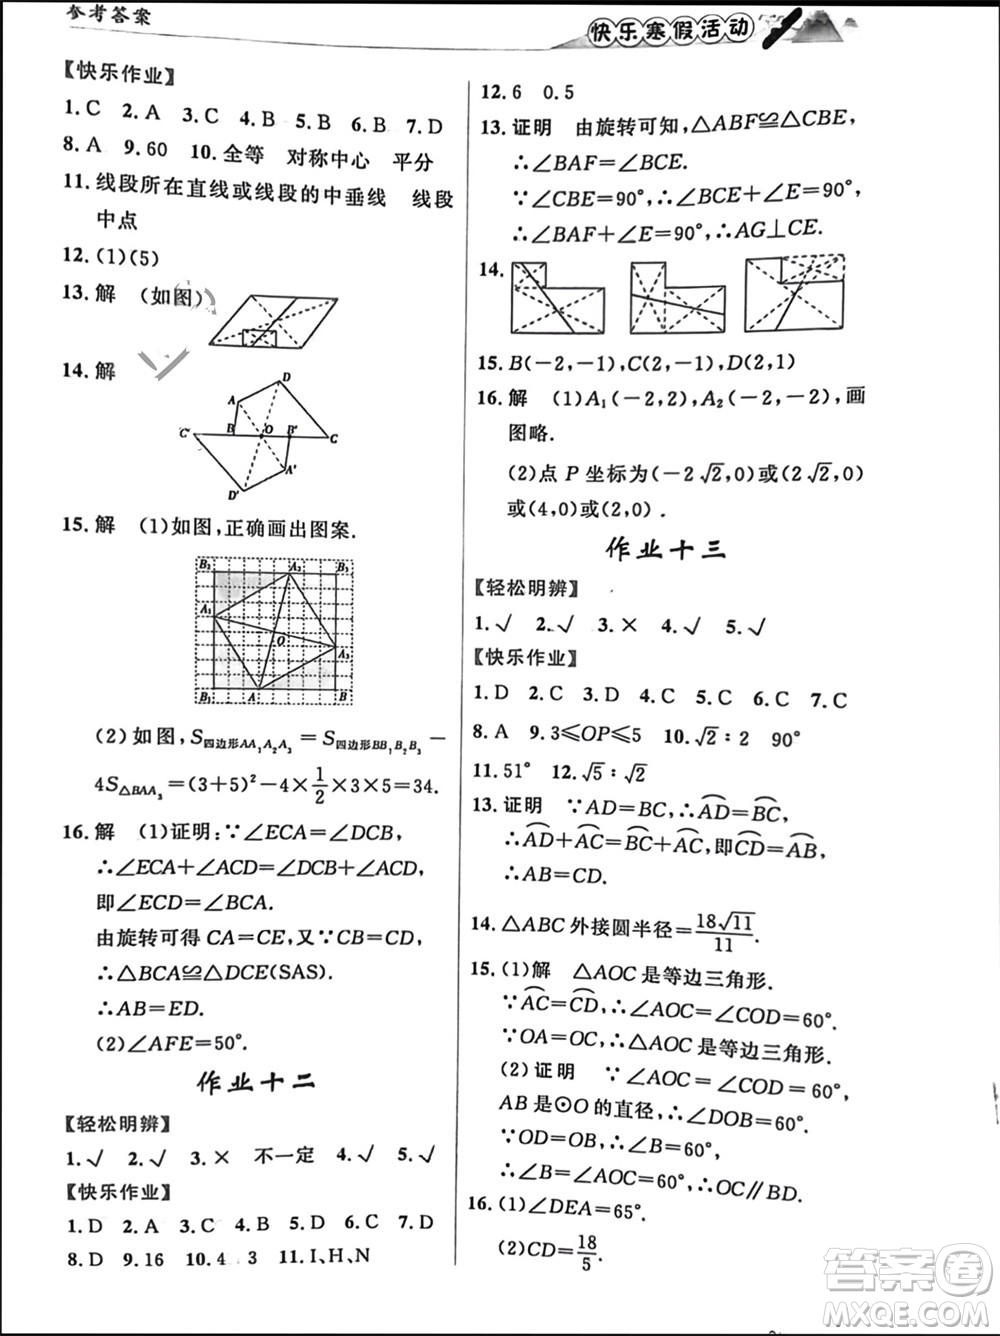 参考答案
快乐寒假活动
【快乐作业】
1. C 2. A 3. C 4. B 5. B 6. B 7. D
8. A 9. 60 10. 全等 对称中心 平分
11. 线段所在直线或线段的中垂线 线段
中点
12. (1)(5)
13. 解 (如图)
14. 解
D
A
C′ B O B′
C
A′
D′
15. 解 (1)如图,正确画出图案.
B₂ A₂ B₁
A₁
O
A₃
B₃ A B
(2)如图,S四边形AA₁A₂A₃=S四边形BB₁B₂B₃−
4S△BAA₃=(3+5)²−4×1/2×3×5=34.
16. 解 (1)证明:∵∠ECA=∠DCB,
∴∠ECA+∠ACD=∠DCB+∠ACD,
即∠ECD=∠BCA.
由旋转可得 CA=CE,又∵CB=CD,
∴△BCA≌△DCE(SAS).
∴AB=ED.
(2)∠AFE=50°.
作业十二
【轻松明辨】
1. √ 2. √ 3. × 不一定 4. √ 5. √
【快乐作业】
1. D 2. A 3. C 4. B 5. D 6. C 7. D
8. D 9. 16 10. 4 3 11. I、H、N
12. 6 0.5
13. 证明 由旋转可知,△ABF≌△CBE,
∴∠BAF=∠BCE.
∵∠CBE=90°,∴∠BCE+∠E=90°,
∴∠BAF+∠E=90°,∴AG⊥CE.
14.
15. B(−2,−1),C(2,−1),D(2,1)
16. 解 (1)A₁(−2,2),A₂(−2,−2),画
图略.
(2)点 P 坐标为(−2√2,0)或(2√2,0)
或(4,0)或(2,0).
作业十三
【轻松明辨】
1. √ 2. √ 3. × 4. √ 5. √
【快乐作业】
1. D 2. C 3. D 4. C 5. C 6. C 7. C
8. A 9. 3≤OP≤5 10. √2∶2 90°
11. 51° 12. √5∶√2
13. 证明 ∵AD=BC,∴⌒AD=⌒BC,
∴⌒AD+⌒AC=⌒BC+⌒AC,即⌒CD=⌒AB,
∴AB=CD.
14. △ABC 外接圆半径=18√11/11.
15. (1)解 △AOC 是等边三角形.
∵⌒AC=⌒CD,∴∠AOC=∠COD=60°.
∵OA=OC,∴△AOC 是等边三角形.
(2)证明 ∵∠AOC=∠COD=60°,
AB 是⊙O 的直径,∴∠DOB=60°.
∵OD=OB,∴∠B=60°.
∴∠B=∠AOC=60°,∴OC∥BD.
16. (1)∠DEA=65°.
(2)CD=18/5.
答案圈
MXQE.COM